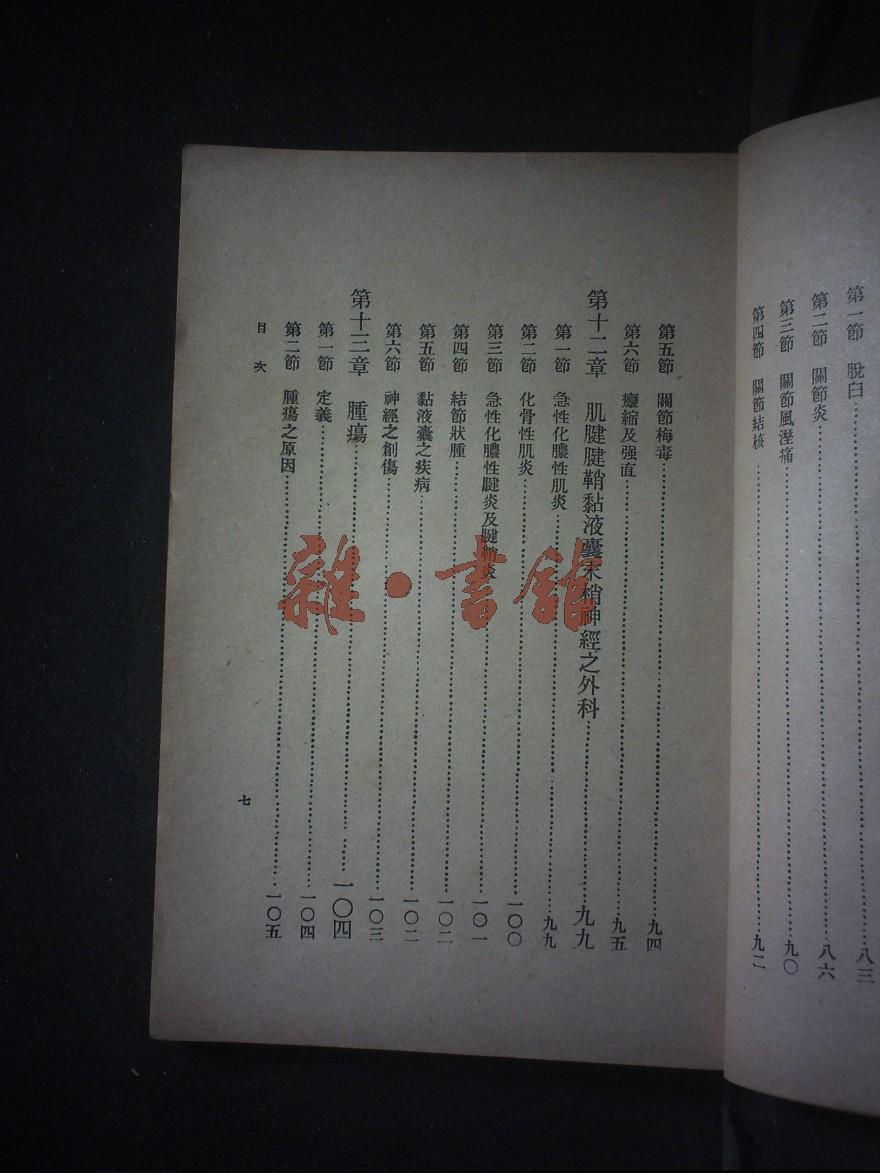 第一節 脫臼……八三
第二節 關節炎……八六
第三節 關節風溼痛……九〇
第四節 關節結核……九二
第五節 關節梅毒……九四
第六節 攣縮及强直……九五
第十二章 肌腱腱鞘黏液囊末梢神經之外科……九九
第一節 急性化膿性肌炎……九九
第二節 化骨性肌炎……一〇〇
第三節 急性化膿性腱炎及腱鞘炎……一〇一
第四節 結節狀腫……一〇二
第五節 黏液囊之疾病……一〇二
第六節 神經之創傷……一〇三
第十三章 腫瘍……一〇四
第一節 定義……一〇四
第二節 腫瘍之原因……一〇五
目次
七
雜·書館